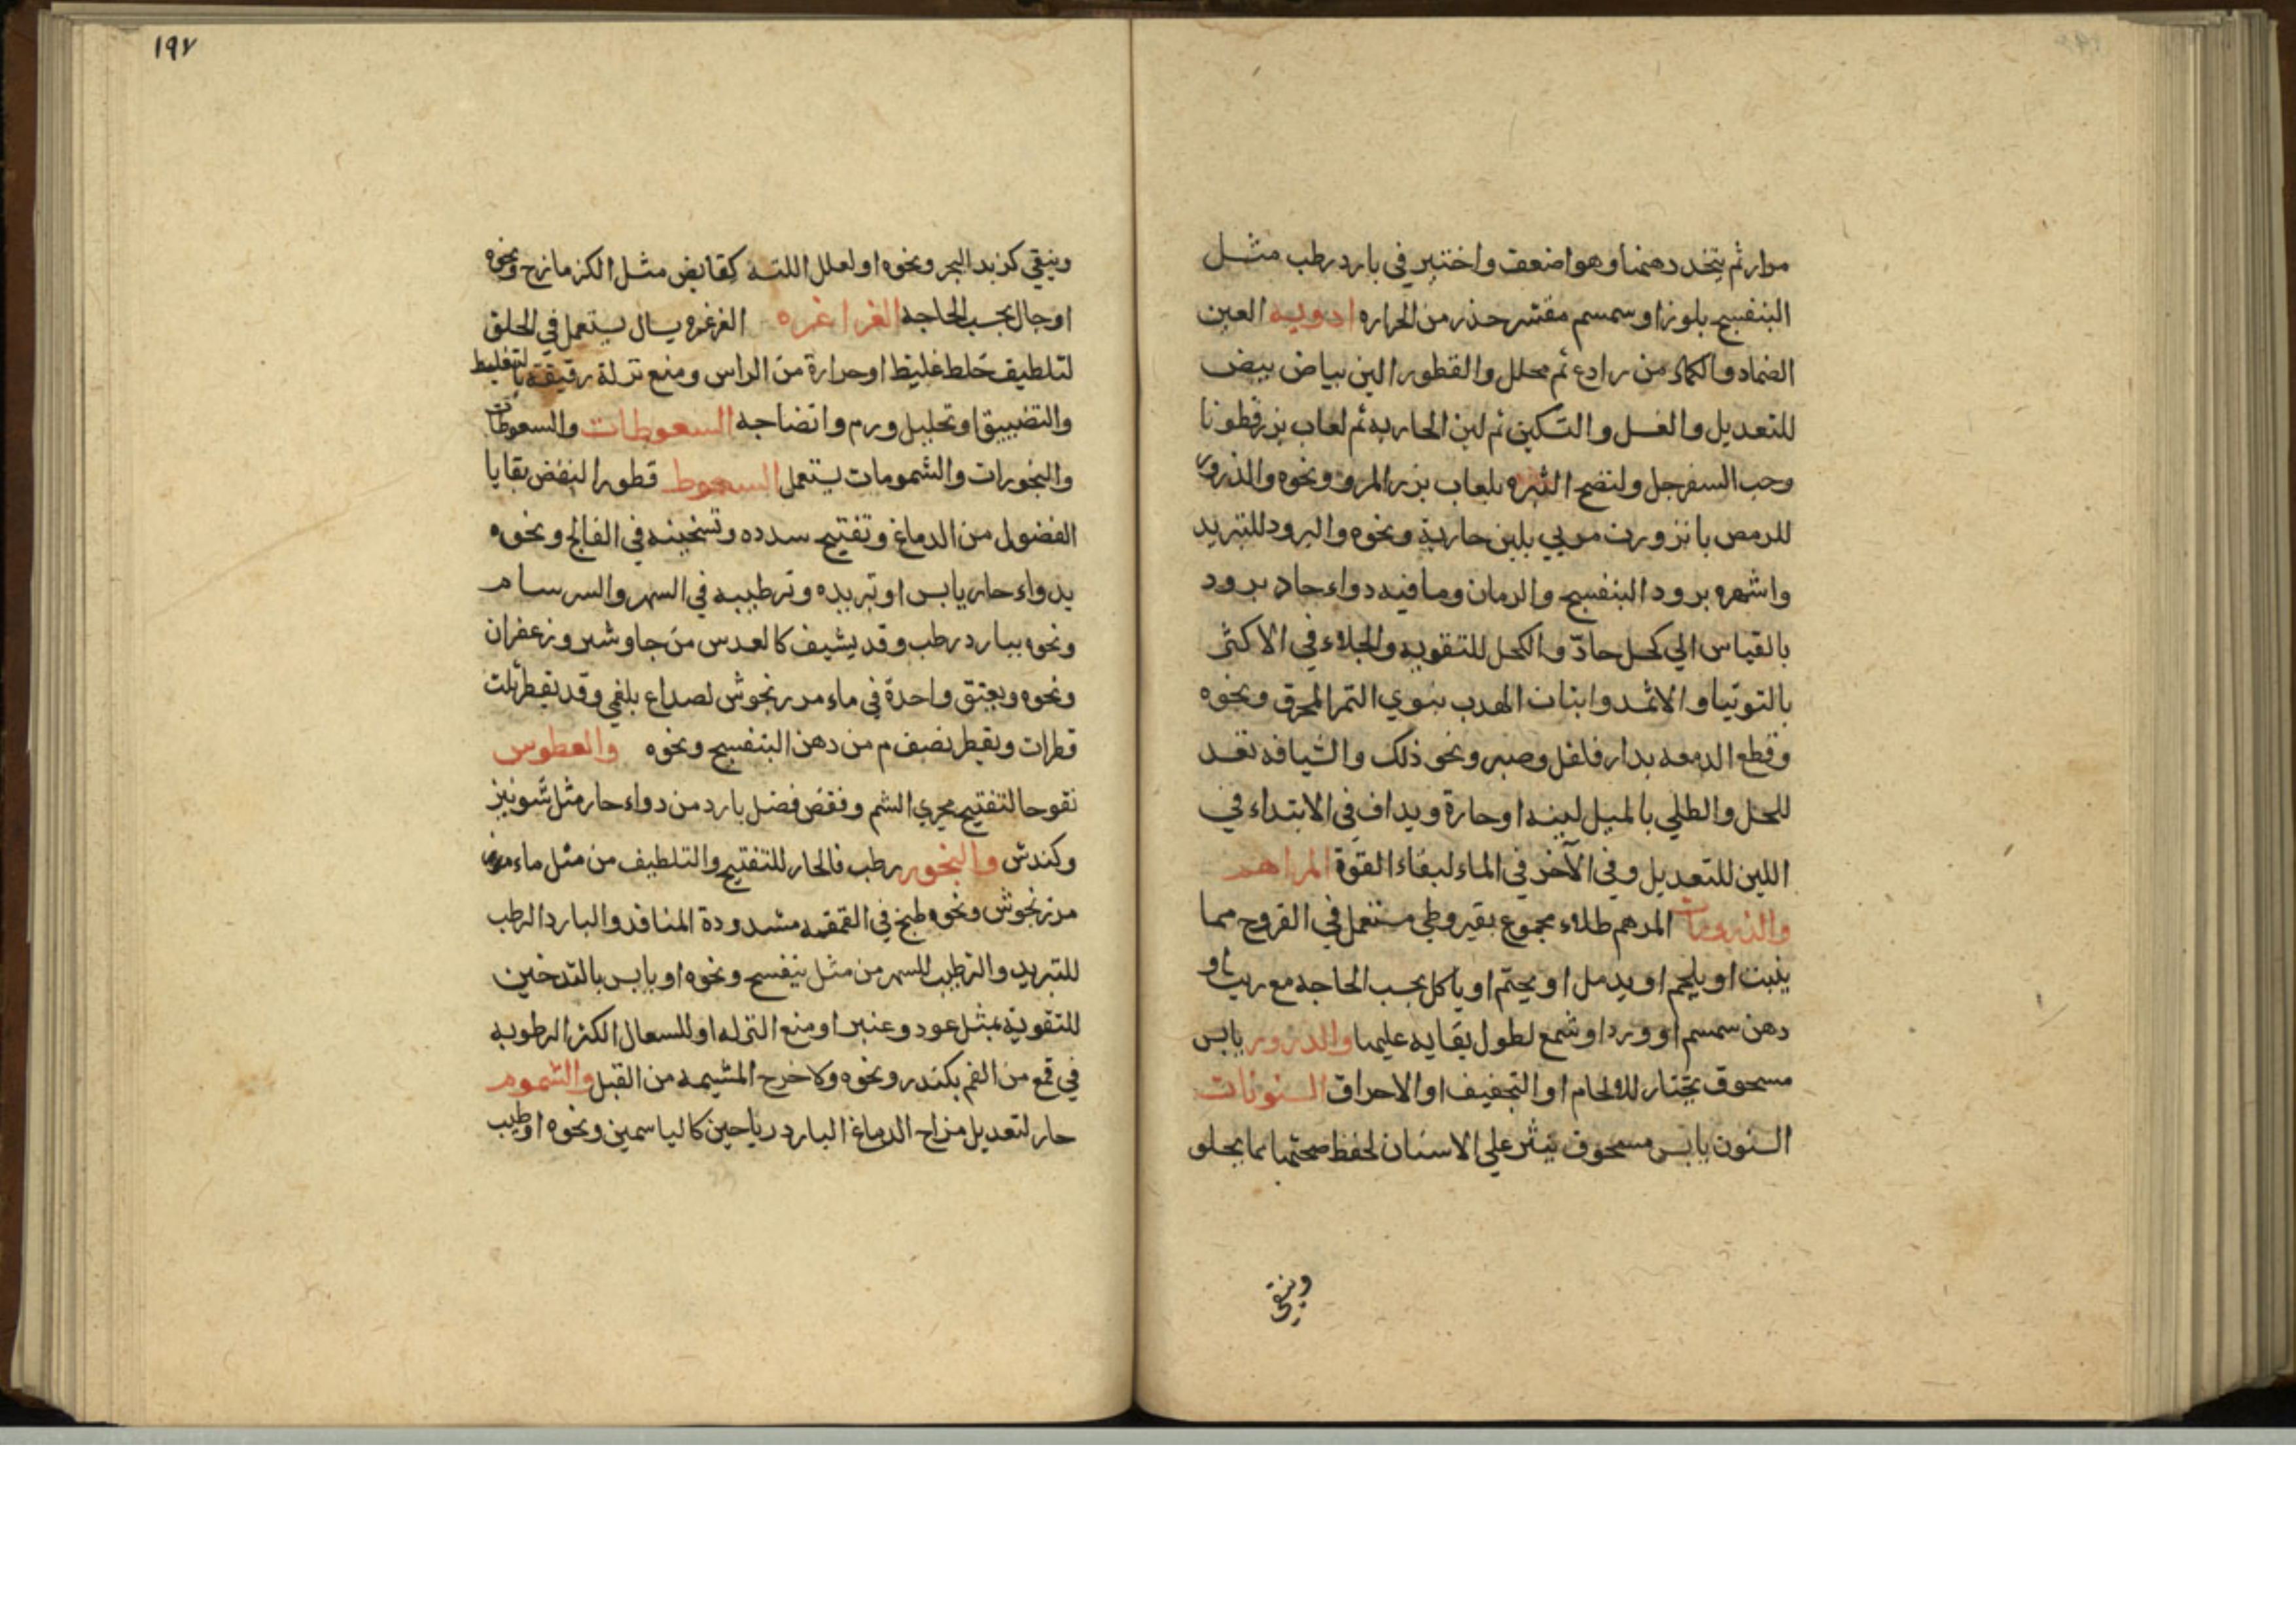 مرار ثم يتخد دهنها وهو اضعف واختير في بارد رطب مثل
البنفسج بلوز او سمسم مقشر حذر من الحراره ادوية العين
الضماد والكماد من رادع ثم محلل والقطور الين بياض بيض
للتعديل والغسل والتسكين ثم لبن الجاريه ثم لعاب بزر قطونا
وحب السفرجل ولنضج البثره بلعاب بزر المرو ونحوه والذرور
للرمص بانزورت مربي بلبن جارية ونحوه والبرود للتبريد
واشهره برود البنفسج والرمان وما فيه دواء حاد برود
بالقياس الي كحل حادّ والكحل للتقويه والجلاء في الاكثر
بالتوتيا والاثمد وانبات الهدب بنوي التمر المحرق ونحوه
وقطع الدمعه بدار فلفل وصبر ونحو ذلك والشيافه تعد
للحل والطلي بالميل لينه او حارة ويداف في الابتداء في
اللبن للتعديل وفي الآخر في الماء لبقاء القوّة المراهم
والذرورات المرهم طلاء مجموع بقيروطي مستعمل في القروح مما
ينبت او يلحم او يدمل او يختم او ياكل بحسب الحاجه مع زيت او
دهن سمسم او ورد او شمع لطول بقايه عليها والذرور يابس
مسحوق يختار للالحام او التجفيف او الاحراق السنونات
السنون يابس مسحوق ينثر علي الاسنان لحفظ صحتها بما يجلو
وينقي
١٩٧
وينقي كزبد البحر ونحوه او لعلل اللثه كقابض مثل الكزمازج ونحوه
او جال بحسب الحاجه الغراغره الغرغره سيال يستعمل في الحلق
لتلطيف خلط غليظ او حرارة من الراس ومنع نزلة رقيقة بالتغليظ
والتضييق او تحليل ورم وانضاجه السعوطات والسعوطات
والبخورات والشمومات يستعمل السعوط قطورا لنفض بقايا
الفضول من الدماغ وتفتيح سدده وتسخينه في الفالج ونحوه
بدواء حار يابس او تبريده وترطيبه في السهر والسرسام
ونحوه ببارد رطب وقد يشيف كالعدس من جاوشير وزعفران
ونحوه ويعتق واحدة في ماء مرزنجوش لصداع بلغمي وقد يقطر ثلث
قطرات ويقطر نصف م من دهن البنفسج ونحوه والعطوس
نفوخا لتفتيح مجري الشم ونفض فضل بارد من دواء حار مثل شونيز
وكندش والبخور رطب فالحار للتفتيح والتلطيف من مثل ماء
مرزنجوش ونحوه طبخ في القمقمه مشدودة المنافد والبارد الرطب
للتبريد والترطيب للسهر من مثل بنفسج ونحوه او يابس بالتدخين
للتقوية بمثل عود وعنبر او منع النزله او للسعال الكثر الرطوبه
في قمع من الفم بكندر ونحوه ولاخراج المشيمه من القبل والشموم
حار لتعديل مزاج الدماغ البارد رياحين كالياسمين ونحوه او طيب